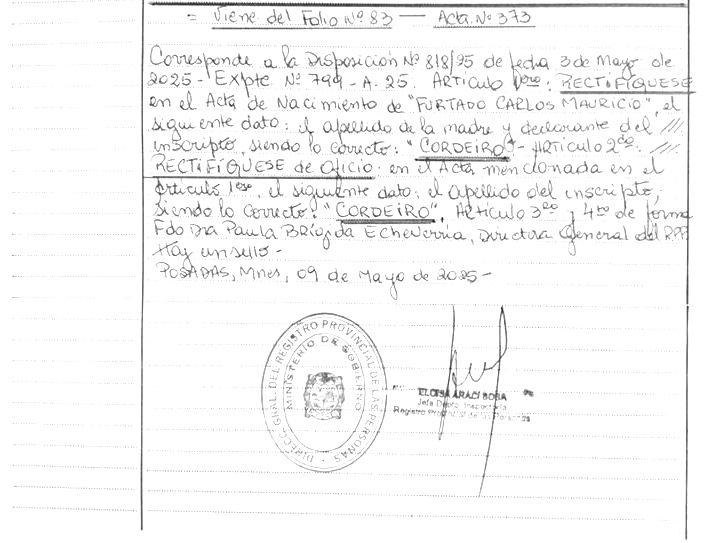 = Viene del Folio Nº 83 — Acta. Nº 373
Corresponde a la Disposición Nº 818/25 de fecha 3 de Mayo de
2025 - Expte Nº 799 - A. 25. Artículo 1ero: RECTIFÍQUESE
en el Acta de Nacimiento de "FURTADO CARLOS MAURICIO", el
siguiente dato: el apellido de la madre y declarante del ///.
inscripto, siendo lo correcto: "CORDEIRO" - Artículo 2do: ///.
RECTIFÍQUESE de OFICIO: en el Acta mencionada en el
Artículo 1ero, el siguiente dato: el apellido del inscripto;
siendo lo correcto: "CORDEIRO", Artículo 3ro y 4to de forma
Fdo Dra Paula Brígida Echeverría, Directora General del R.P.P.
Hay un sello -
POSADAS, Mnes, 09 de Mayo de 2025 -
DIRECC. GRAL. DEL REGISTRO PROVINCIAL DE LAS PERSONAS
MINISTERIO DE GOBIERNO
ELOISA ARACI SOSA
Jefa Depto. Inspectoría
Registro Provincial de las Personas